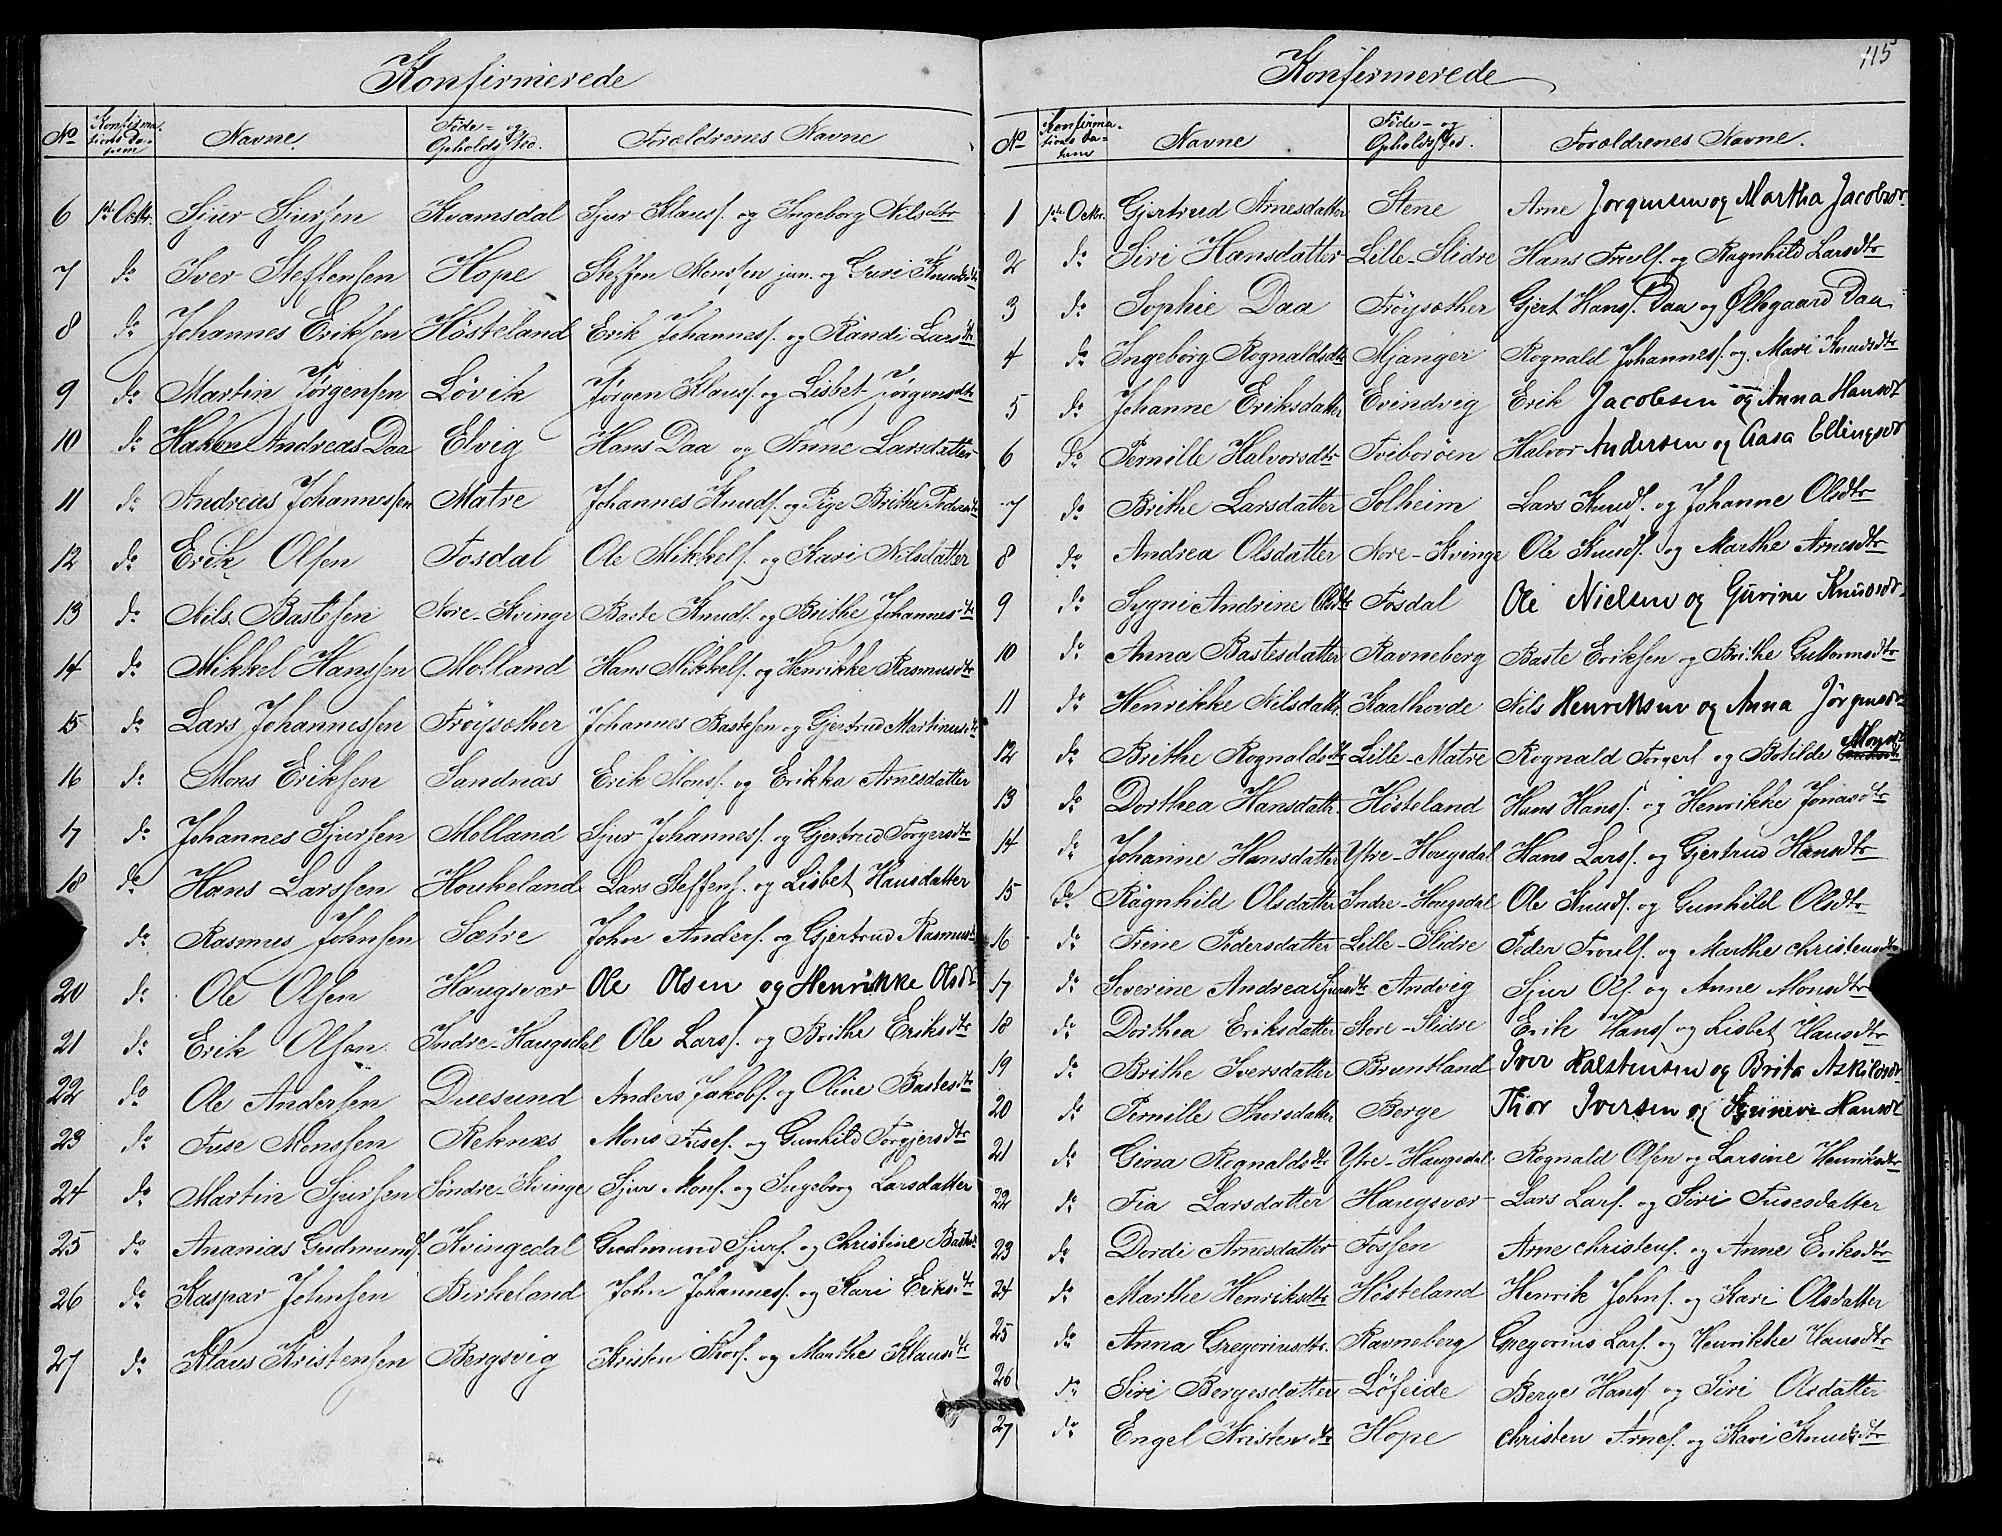 Konfirmerede
No Konfirmations Datum Navne Føde- og Opholdssted. Forældrenes Navne
6 1ste Octbr. Sjur Sjursen Kvamsdal Sjur Klaus. og Ingeborg Nilsdtr
7 do Iver Steffensen Hope Steffen Monssen jun. og Guri Knudsdtr
8 do Johannes Eriksen Høsteland Erik Johannes. og Randi Larsdtr
9 do Martin Jørgensen Løvik Jørgen Klaus. og Lisbet Jørgensdtr
10 do Haken Andreas Daa Elvig Hans Daa og Anne Larsdatter
11 do Andreas Johannessen Matre Johannes Knuds. og Pige Brithe Pedersdtr
12 do Erik Olsen Fosdal Ole Mikkels. og Kari Nilsdatter
13 do Nils Bastesen Nore-Kvinge Baste Knuds. og Brithe Johannesdtr
14 do Mikkel Hanssen Molland Hans Mikkels. og Henrikke Rasmusdtr
15 do Lars Johannessen Frøysæther Johannes Bastesen og Gjertrud Martinusdtr
16 do Mons Eriksen Sandnæs Erik Mons. og Erikka Arnesdatter
17 do Johannes Sjursen Molland Sjur Johannes. og Gjertrud Torgersdtr
18 do Hans Larssen Houkeland Lars Steffens. og Lisbet Hansdatter
do Rasmus Johnsen Sætre John Anders. og Gjertrud Rasmusdtr
20 do Ole Olsen Haugsvær Ole Olsen og Henrikke Olsdtr
21 do Erik Olsen Indre-Haugsdal Ole Lars. og Brithe Eriksdtr
22 do Ole Andersen Duesund Anders Jakobs. og Oline Bastesdtr
23 do Tuse Monssen Reknes Mons Tuses. og Gunhild Torgjersdtr
24 do Martin Sjursen Søndre-Kvinge Sjur Mons. og Ingeborg Larsdatter
25 do Ananias Gudmunds. Kvingedal Gudmund Sjurs. og Christine Bastesdtr
26 do Kaspar Johnsen Birkeland John Johannes. og Kari Eriksdtr
27 do Klaus Kristensen Bergsvig Kristen Thors. og Marthe Klausdtr
115
Konfirmerede
No Konfirmations Datum Navne Føde- og Opholdssted. Forældrenes Navne.
1 1ste Octbr. Gjertrud Arnesdatter Stene Arne Jørgensen og Martha Jacobsdr
2 do Siri Hansdatter Lille-Slidre Hans Truls. og Ragnhild Larsdtr
3 do Sophie Daa Frøysæther Gjert Hans. Daa og Øllegaard Daa
4 do Ingeborg Rognaldsdtr Mjanger Rognald Johannes. og Mari Knudsdtr
5 do Johanne Eriksdatter Evindvig Erik Jacobsen og Anna Hansdt
6 do Pernille Halvorsdtr Tveborøen Halvor Andersen og Aasa Ellingsdt
7 do Brithe Larsdatter Solheim Lars Knud. og Johanne Olsdtr
8 do Andrea Olsdatter Nore-Kvinge Ole Knuds. og Marthe Arnesdtr
9 do Sygni Andrine Olsdtr Fosdal Ole Nielsen og Gurine Knudsdr
10 do Anna Bastesdatter Ravneberg Baste Eriksen og Brithe Guttormsdtr
11 do Henrikke Nilsdatter Kaalhovde Nils Henriksen og Anna Jørgensdr
12 do Brithe Rognaldsdtr Lille-Matre Rognald Torgers. og Botilde Monsdtr
13 do Dorthea Hansdatter Høsteland Hans Hans. og Henrikke Jonasdtr
14 do Johanne Hansdatter Ytre-Hougsdal Hans Lars. og Gjertrud Hansdtr
15 do Ragnhild Olsdatter Indre-Hougsdal Ole Knuds. og Gunhild Olsdtr
16 do Trine Pedersdatter Lille-Slidre Peder Trouls. og Marthe Christensdtr
17 do Severine Andrea Sjursdtr Andvig Sjur Ols. og Anne Monsdtr
18 do Dorthea Eriksdatter Store-Slidre Erik Hans. og Lisbet Hansdtr
19 do Brithe Iversdatter Bruntland Iver Halstensen og Brita Askildsdr
20 do Pernille Thorsdatter Berge Thor Iversen og Synneve Hansdt
21 do Gina Rognaldsdtr Ytre-Haugsdal Rognald Olsen og Larsine Henriksdtr
22 do Fia Larsdatter Haugsvær Lars Lars. og Siri Tusesdatter
23 do Dordi Arnesdatter Fossen Arne Christens. og Anne Eriksdtr
24 do Marthe Henriksdtr Høsteland Henrik Johns. og Kari Olsdatter
25 do Anna Gregoriusdtr. Ravneberg Gregorius Lars. og Henrikke Hansdtr
26 do Siri Bergesdatter Løfeide Berge Hans. og Siri Olsdatter
27 do Engel Kristensdtr Hope Christen Arnes. og Kari Knudsdtr